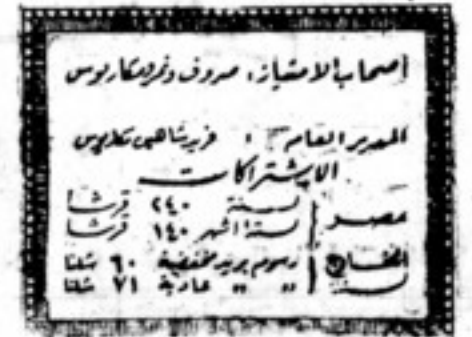 أصحاب الامتياز: صروف ونمر ومكاريوس
المدير العام : فريد شاهين مكاريوس
الاشتراكات
مصر لسنة ٢٤٠ قرشا
لستة اشهر ١٤٠ قرشا
الخارج رسوم بريد مخفضة ٦٠ شلنا
لسنة » » عادية ٧١ شلنا